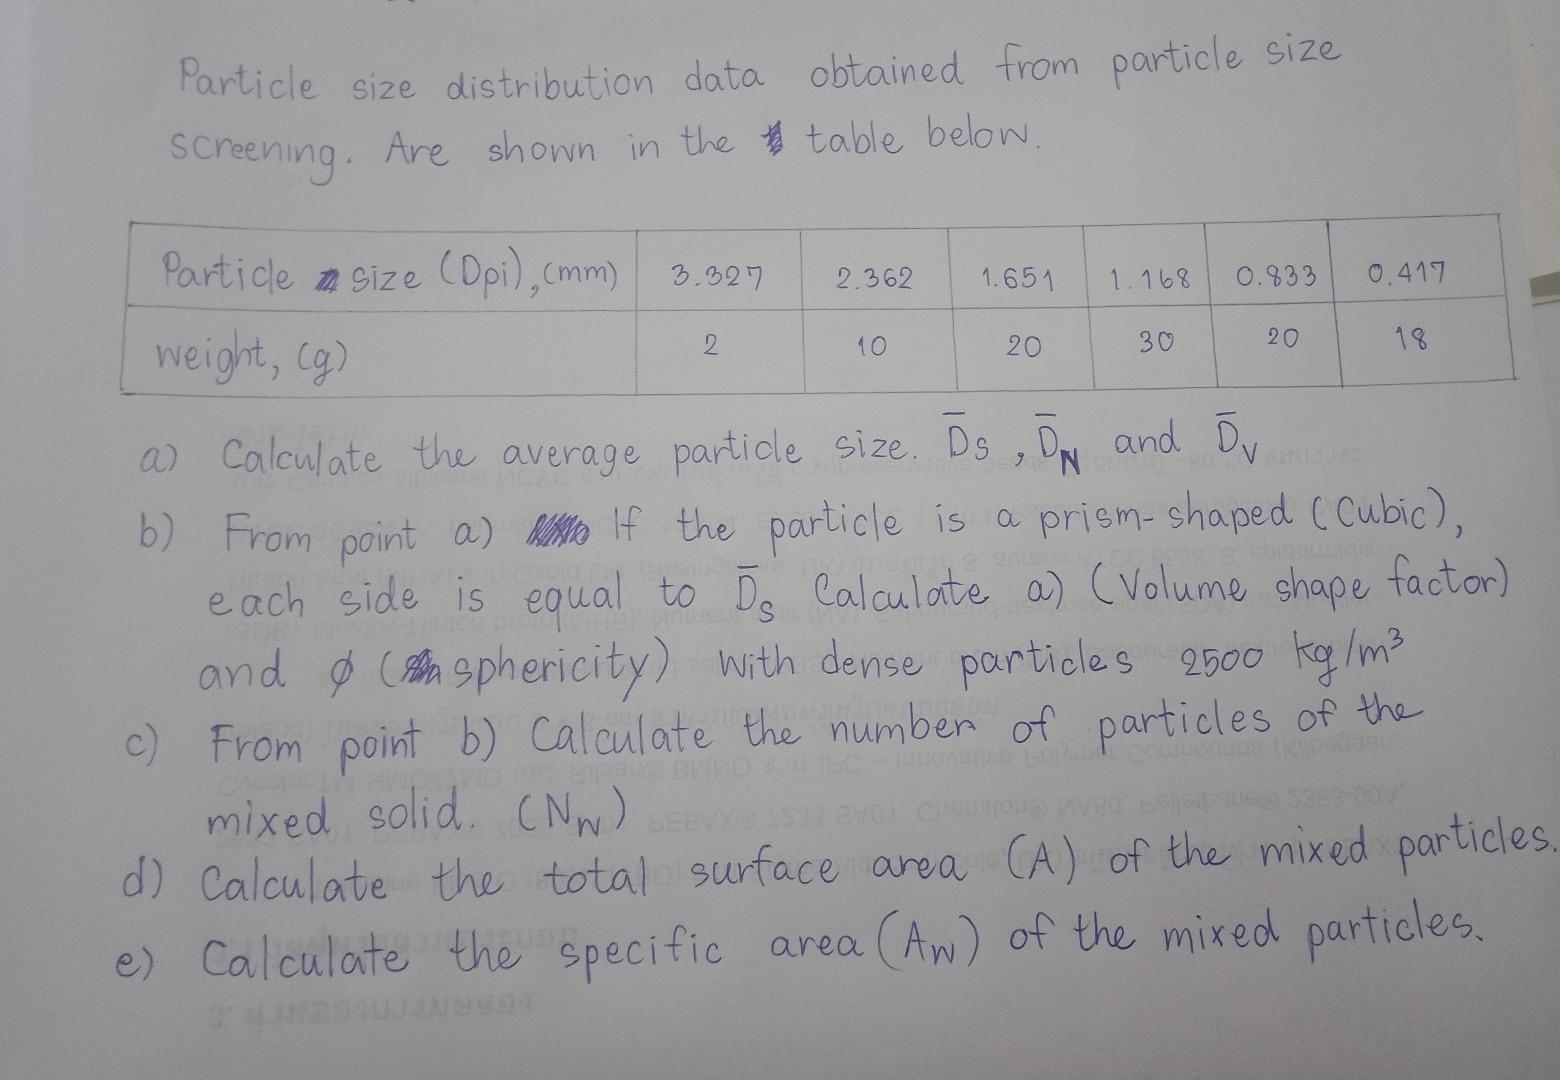 Particle size distribution data obtained from particle size
screening. Are shown in the table below.
Particle size (Dpi), (mm) 3.327 2.362 1.651 1.168 0.833 0.417
weight, (g) 2 10 20 30 20 18
a) Calculate the average particle size. D̄s , D̄N and D̄v
b) From point a) If the particle is a prism-shaped (Cubic),
each side is equal to D̄s Calculate a) (Volume shape factor)
and ϕ (sphericity) with dense particles 2500 kg/m³
c) From point b) Calculate the number of particles of the
mixed solid. (Nw)
d) Calculate the total surface area (A) of the mixed particles.
e) Calculate the specific area (Aw) of the mixed particles.